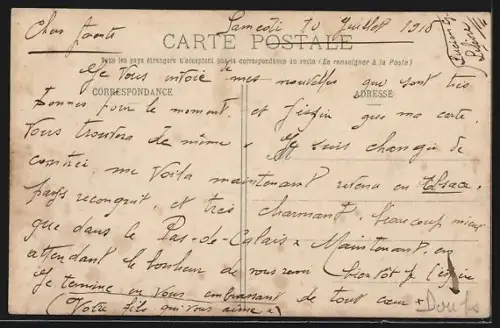 Samedi 10 Juillet 1915
Chers Parents
CARTE POSTALE
Tous les pays étrangers n'acceptent pas la correspondance au recto (Se renseigner à la Poste)
Je vous envoie de mes nouvelles que sont très
CORRESPONDANCE
ADRESSE
bonnes pour le moment, et j'espère que ma carte
vous trouvera de même. Je suis changé de
contrée me voila maintenant retenu en Alsace,
pays reconquit, et très charmant, beaucoup mieux
que dans le Pas-de-Calais x Maintenant, en
attendant le bonheur de vous revoir bientôt je l'espère
Je termine en vous embrassant de tout cœur x
(Votre fils qui vous aime x)
Doubs